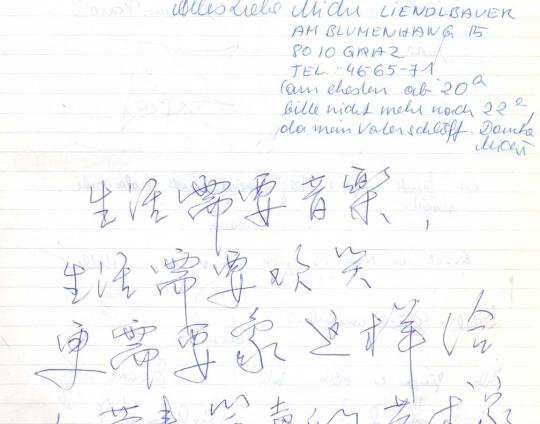 Alles Liebe Michi LIENDLBAUER
AM BLUMENHANG 15
8010 GRAZ
TEL: 46-65-71
(am ehesten ab 20
bitte nicht mehr nach 22
da mein Vater schläft. Danke
Michi
生活需要音樂,
生活需要欢笑
更需要象这样给